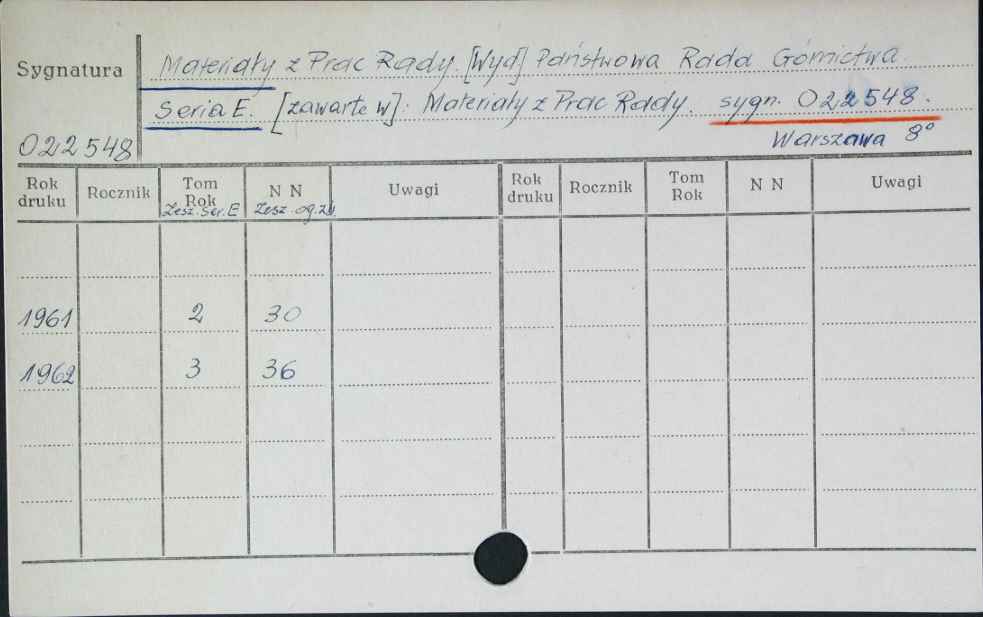 Sygnatura
Materiały z Prac Rady. [Wyd] Państwowa Rada Górnictwa.
Seria E. [zawarte w]: Materiały z Prac Rady. sygn. 022548.
022548
Warszawa 8°
Rok druku Rocznik Tom Rok N N Uwagi Rok druku Rocznik Tom Rok N N Uwagi
Zesz. Ser. E Zesz. og. zb.
1961 2 30
1962 3 36